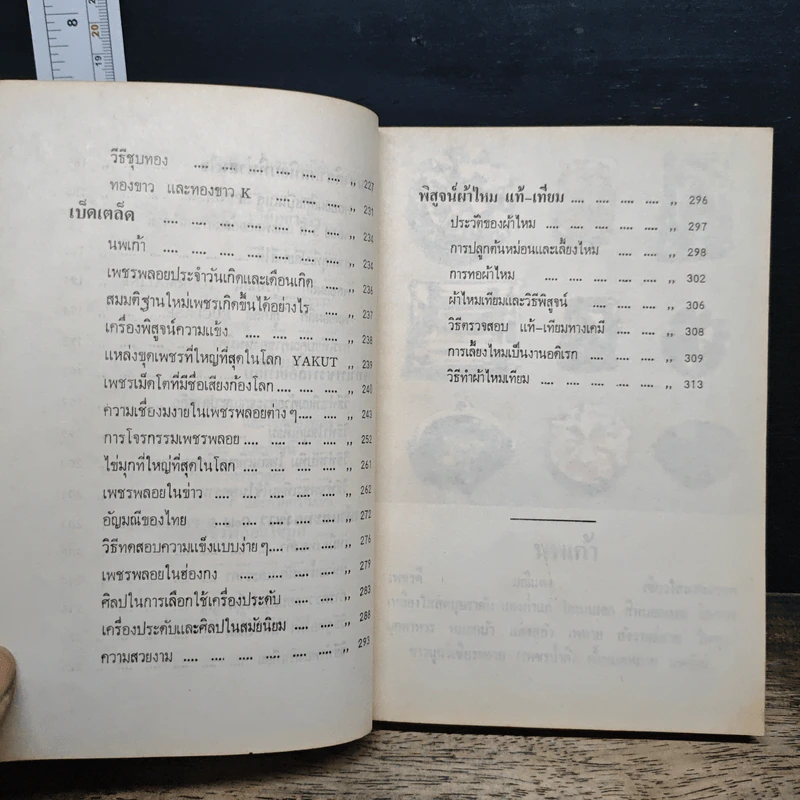 8
20
19
วิธีชุบทอง .... .... .... .... .... .... ,, 227
ทองขาว และทองขาว K .... .... .... ,, 231
เบ็ดเตล็ด .... .... .... .... .... .... ,, 234
นพเก้า .... .... .... .... .... .... ,, 234
เพชรพลอยประจำวันเกิดและเดือนเกิด .... ,, 236
สมมติฐานใหม่เพชรเกิดขึ้นได้อย่างไร .... ,, 237
เครื่องพิสูจน์ความแข้ง .... .... .... .... ,, 238
แหล่งขุดเพชรที่ใหญ่ที่สุดในโลก YAKUT ,, 239
เพชรเม็ดโตที่มีชื่อเสียงก้องโลก .... .... .... ,, 240
ความเชื่อมงายในเพชรพลอยต่าง ๆ .... .... ,, 243
การโจรกรรมเพชรพลอย .... .... .... .... ,, 252
ไข่มุกที่ใหญ่ที่สุดในโลก .... .... .... .... ,, 261
เพชรพลอยในข่าว .... .... .... .... .... ,, 262
อัญมณีของไทย .... .... .... .... .... ,, 272
วิธีทดสอบความแข็งแบบง่าย ๆ .... .... .... ,, 276
เพชรพลอยในฮ่องกง .... .... .... .... ,, 279
ศิลปในการเลือกใช้เครื่องประดับ .... .... ,, 283
เครื่องประดับและศิลปในสมัยนิยม .... .... ,, 288
ความสวยงาม .... .... .... .... .... .... ,, 293
พิสูจน์ผ้าไหม แท้-เทียม .... .... .... .... ,, 296
ประวัติของผ้าไหม .... .... .... .... ,, 297
การปลูกต้นหม่อนและเลี้ยงไหม .... .... ,, 298
การทอผ้าไหม .... .... .... .... ,, 302
ผ้าไหมเทียมและวิธีพิสูจน์ .... .... .... ,, 306
วิธีตรวจสอบ แท้-เทียมทางเคมี .... .... ,, 308
การเลี้ยงไหมเป็นงานอดิเรก .... .... .... ,, 309
วิธีทำผ้าไหมเทียม .... .... .... .... ,, 313